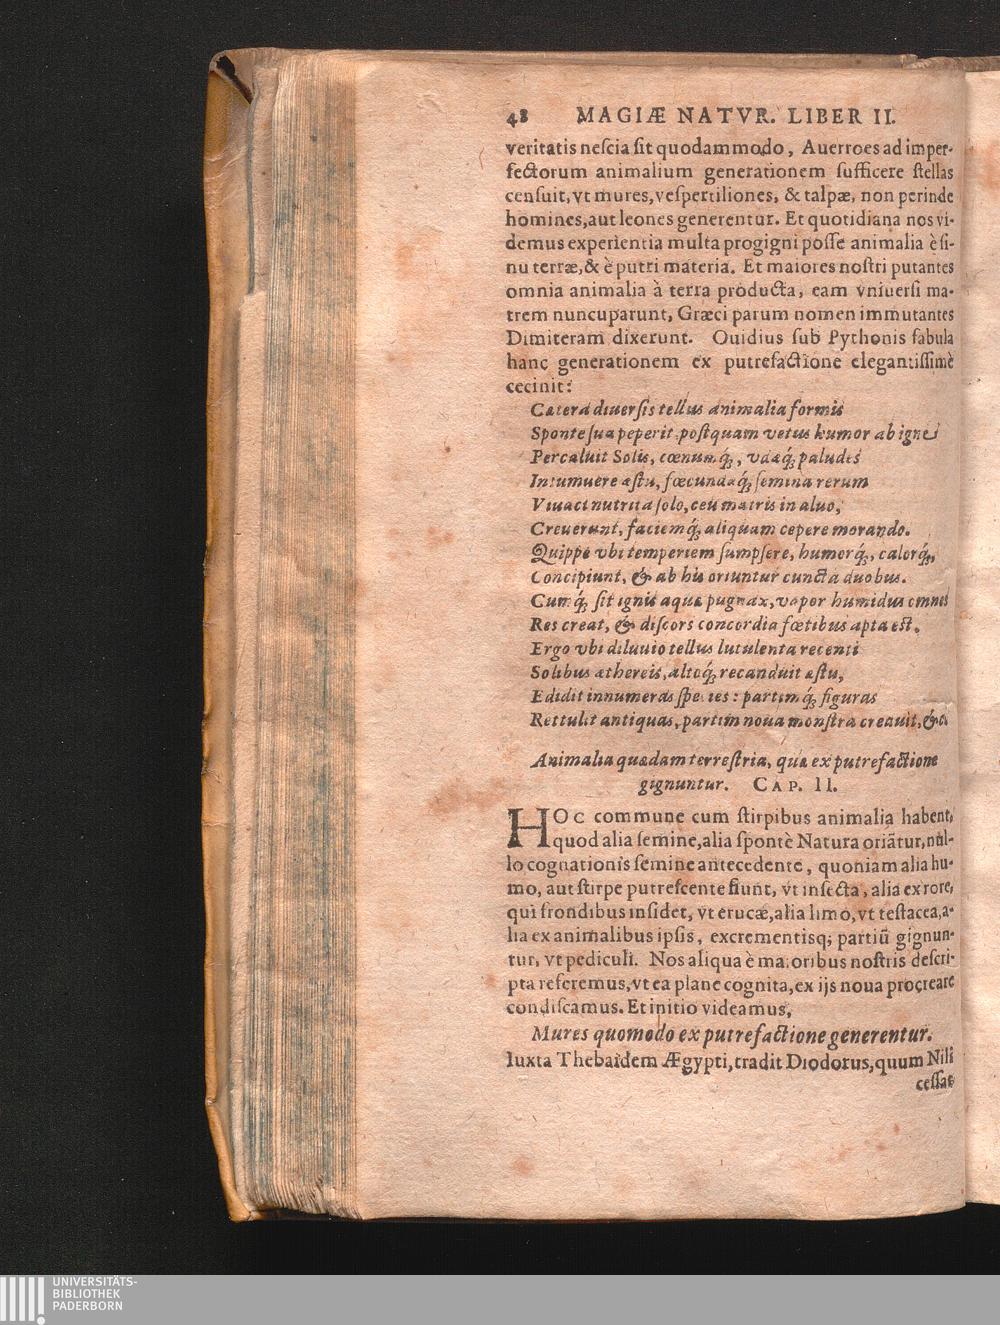 48 MAGIÆ NATVR. LIBER II.
veritatis neſcia ſit quodammodo, Auerroes ad imper-
fectorum animalium generationem ſufficere ſtellas
cenſuit, vt mures, veſpertiliones, & talpæ, non perinde
homines, aut leones generentur. Et quotidiana nos vi-
demus experientia multa progigni poſſe animalia è ſi-
nu terræ, & è putri materia. Et maiores noſtri putantes
omnia animalia à terra producta, eam vniuerſi ma-
trem nuncuparunt, Græci parum nomen immutantes
Dimiteram dixerunt. Ouidius ſub Pythonis fabula
hanc generationem ex putrefactione elegantiſſimè
cecinit:
Cætera diuerſis tellus animalia formis
Sponte ſua peperit, poſtquam vetus humor ab igne
Percaluit Solis, cœnumq́;, vdæq́; paludes
Intumuere æſtu, fœcundaq́; ſemina rerum
Viuaci nutrita ſolo, ceu matris in aluo,
Creuerunt, faciemq́; aliquam cepere morando.
Quippe vbi temperiem ſumpſere, humorq́;, calorq́;,
Concipiunt, & ab his oriuntur cuncta duobus.
Cumq́; ſit ignis aquæ pugnax, vapor humidus omnes
Res creat, & diſcors concordia fœtibus apta est.
Ergo vbi diluuio tellus lutulenta recenti
Solibus æthereis, altoq́; recanduit æſtu,
Edidit innumeras ſpecies: partimq́; figuras
Rettulit antiquas, partim noua monſtra creauit, &c.
Animalia quædam terreſtria, quæ ex putrefactione
gignuntur. CAP. II.
HOC commune cum ſtirpibus animalia habent,
quod alia ſemine, alia ſpontè Natura oriãtur, nul-
lo cognationis ſemine antecedente, quoniam alia hu-
mo, aut ſtirpe putreſcente fiunt, vt inſecta, alia ex rore,
qui frondibus inſidet, vt erucæ, alia limo, vt teſtacea, a-
lia ex animalibus ipſis, excrementisq; partiũ gignun-
tur, vt pediculi. Nos aliqua è maioribus noſtris deſcri-
pta referemus, vt ea plane cognita, ex ijs noua procreare
condiſcamus. Et initio videamus,
Mures quomodo ex putrefactione generentur.
Iuxta Thebaïdem Ægypti, tradit Diodorus, quum Nili
ceſſat
UNIVERSITÄTS-
BIBLIOTHEK
PADERBORN